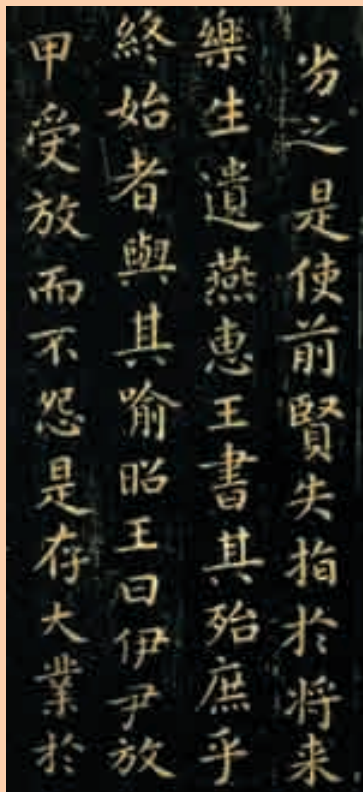 劣之是使前賢失指於将来
樂生遺燕惠王書其殆庶乎
終始者與其喻昭王曰伊尹放
甲受放而不怨是存大業於